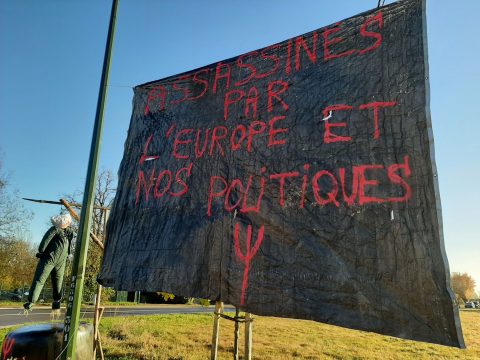 ASSASSINES
PAR
L'EUROPE ET
NOS POLITIQUES